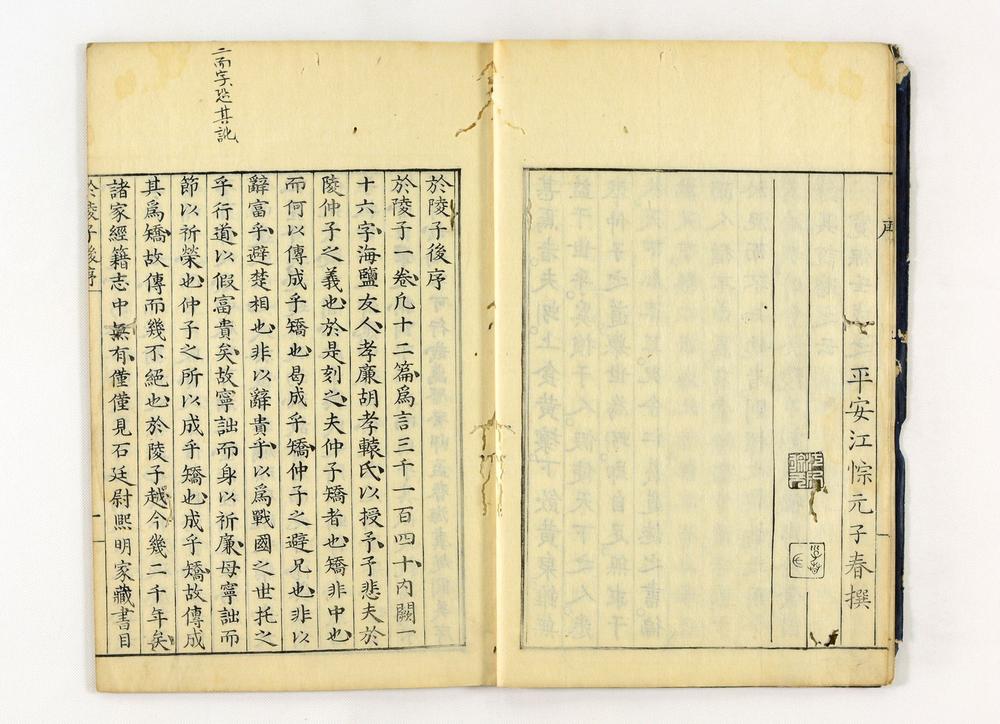 平安江悰元子春撰
二而字恐其訛
於陵子後序
於陵子一卷凡十二篇爲言三千六百四十內闕一
十六字海鹽友人孝廉胡孝轅氏以授予予悲夫於
陵仲子之義也於是刻之夫仲子矯者也矯非中也
而何以傳成乎矯也曷成乎矯仲子之避兄也非以
辭富乎避楚相也非以辭貴乎以爲戰國之世托之
乎行道以假富貴矣故寧詘而身以祈廉母寧詘而
節以祈榮也仲子之所以成乎矯也成乎矯故傳成
其爲矯故傳而幾不絕也於陵子越今幾二千年矣
諸家經籍志中無有僅僅見石廷尉熙明家藏書目
於陵子後序
一